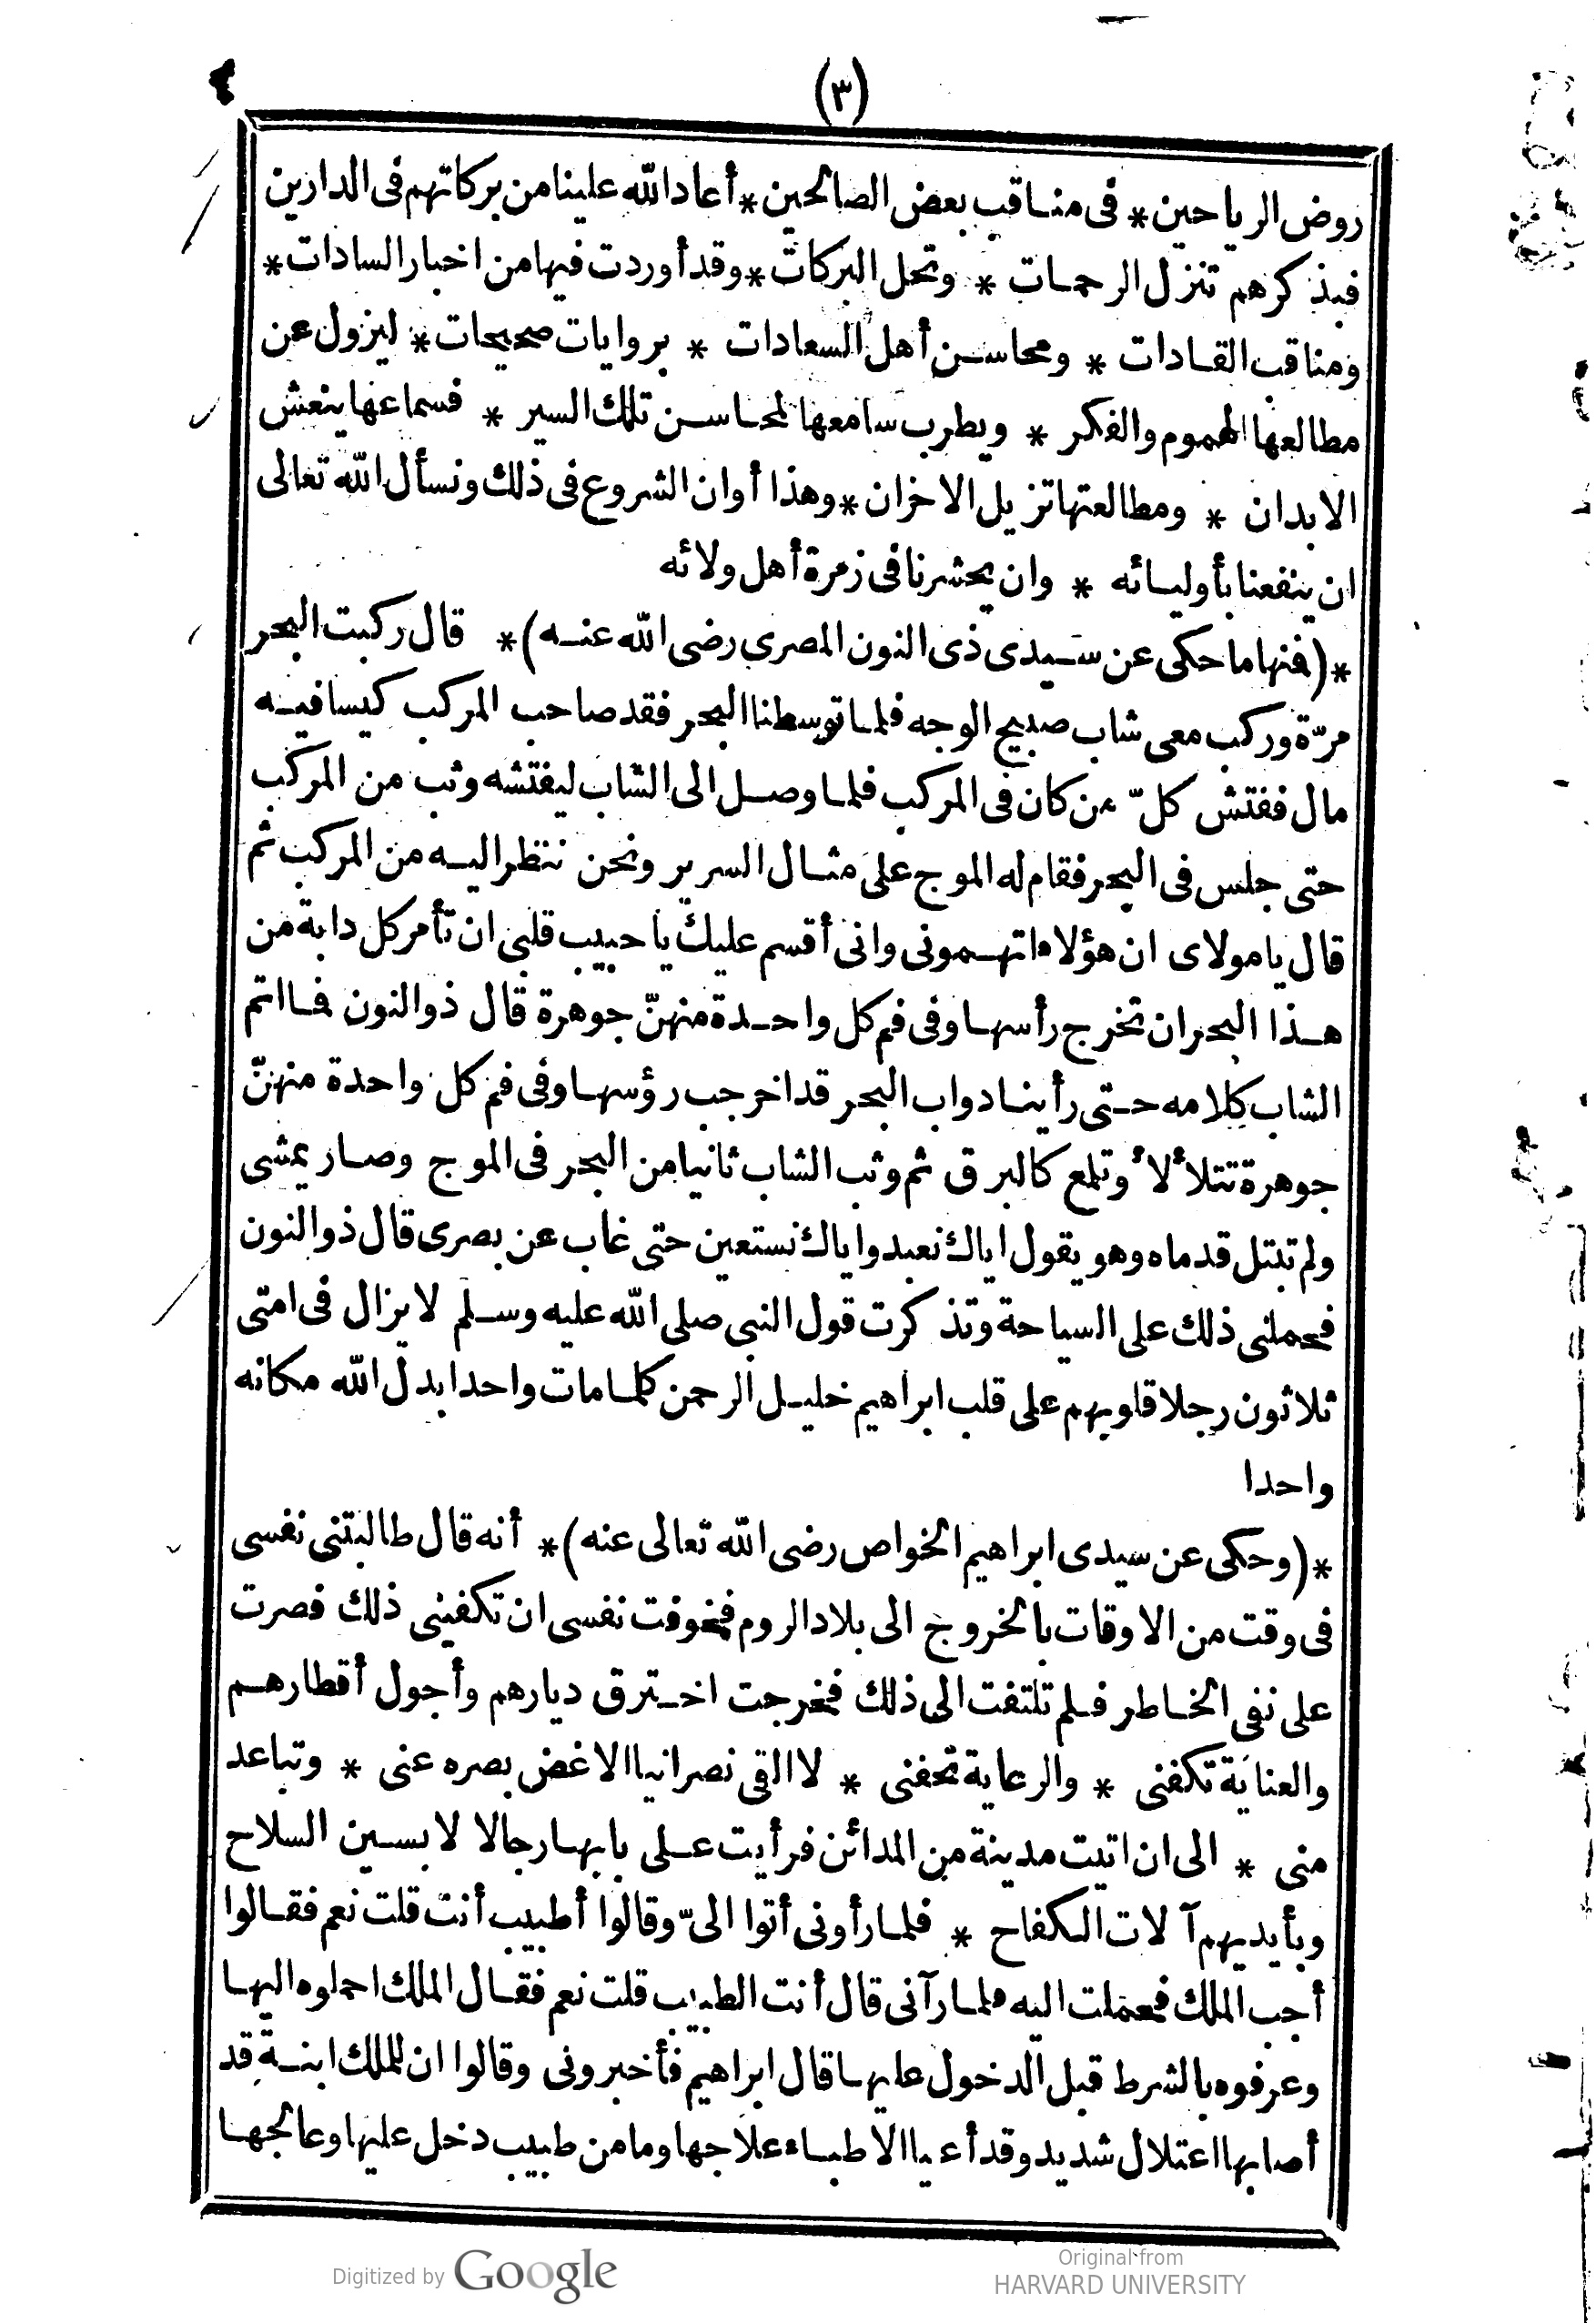 (٣)
روض الرياحين * فى مناقب بعض الصالحين * أعاد الله علينا من بركاتهم فى الدارين
فبذكرهم تنزل الرحمات * وتحل البركات * وقد أوردت فيها من اخبار السادات *
ومناقب القادات * ومحاسن أهل السعادات * بروايات صحيحات * ليزول عن
مطالعها الهموم والفكر * ويطرب سامعها لمحاسن تلك السير * فسماعها ينعش
الابدان * ومطالعتها تزيل الاحزان * وهذا أوان الشروع فى ذلك ونسأل الله تعالى
ان ينفعنا بأوليائه * وان يحشرنا فى زمرة أهل ولائه
*(فمنها ما حكى عن سيدى ذى النون المصرى رضى الله عنه)* قال ركبت البحر
مرّة وركب معى شاب صبيح الوجه فلما توسطنا البحر فقد صاحب المركب كيسا فيه
مال ففتش كلّ من كان فى المركب فلما وصل الى الشاب ليفتشه وثب من المركب
حتى جلس فى البحر فقام له الموج على مثال السرير ونحن ننظر اليه من المركب ثم
قال يا مولاى ان هؤلاء اتهمونى وانى أقسم عليك يا حبيب قلبى ان تأمر كل دابة من
هذا البحر ان تخرج رأسها وفى فم كل واحدة منهنّ جوهرة قال ذوالنون فما اتم
الشاب كلامه حتى رأينا دواب البحر قد اخرجب رؤسها وفى فم كل واحدة منهنّ
جوهرة تتلأ لأ وتلمع كالبرق ثم وثب الشاب ثانيا من البحر فى الموج وصار يمشى
ولم تبتل قدماه وهو يقول اياك نعبد واياك نستعين حتى غاب عن بصرى قال ذوالنون
فحملنى ذلك على السياحة وتذكرت قول النبى صلى الله عليه وسلم لا يزال فى امتى
ثلاثون رجلا قلوبهم على قلب ابراهيم خليل الرحمن كلما مات واحد ابدل الله مكانه
واحدا
*(وحكى عن سيدى ابراهيم الخواص رضى الله تعالى عنه)* أنه قال طالبتنى نفسى
فى وقت من الاوقات بالخروج الى بلاد الروم فخوفت نفسى ان تكفينى ذلك فصرت
على نفى الخاطر فلم تلتفت الى ذلك فخرجت اخترق ديارهم وأجول أقطارهم
والعناية تكفنى * والرعاية تحفنى * لا القى نصرانيا الا غض بصره عنى * وتباعد
منى * الى ان اتيت مدينة من المدائن فرأيت على بابها رجالا لابسين السلاح
وبأيديهم آلات الكفاح * فلما رأونى أتوا الىّ وقالوا أطبيب أنت قلت نعم فقالوا
أجب الملك فحملت اليه فلما رآنى قال أنت الطبيب قلت نعم فقال الملك احملوه اليها
وعرفوه بالشرط قبل الدخول عليها قال ابراهيم فأخبرونى وقالوا ان للملك ابنة قد
أصابها اعتلال شديد وقد أعيا الاطباء علاجها وما من طبيب دخل عليها وعالجها
Digitized by Google
Original from
HARVARD UNIVERSITY